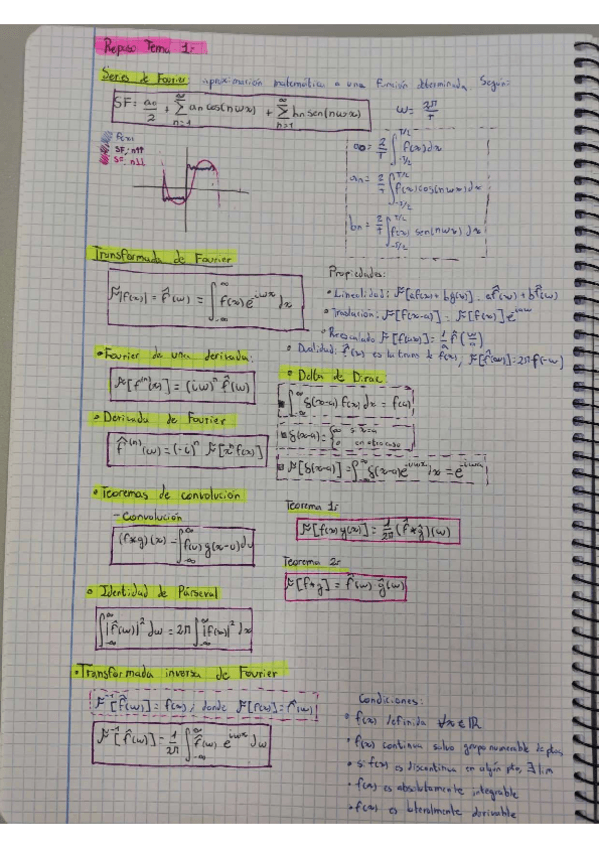 Repaso Tema 1:
Series de Fourier aproximación matemática a una función determinada. Según:
SF: a₀/2 + Σ_{n=1}^{∞} aₙ cos(nωx) + Σ_{n=1}^{∞} bₙ sen(nωx) ω = 2π/T
f(x)
SF: n↑↑
SF: n↓↓
a₀ = 2/T ∫_{-T/2}^{T/2} f(x)dx
aₙ = 2/T ∫_{-T/2}^{T/2} f(x)cos(nωx)dx
bₙ = 2/T ∫_{-T/2}^{T/2} f(x) sen(nωx) dx
Transformada de Fourier
F[f(x)] = f̂(ω) = ∫_{-∞}^{∞} f(x)e^{iωx} dx
Propiedades:
• Linealidad: F[af(x)+bg(x)] = af̂(ω)+bĝ(ω)
• Traslación: F[f(x-a)] = F[f(x)]e^{iaω}
• Rescalado F[f(ax)] = 1/a f̂(ω/a)
• Dualidad: f̂(x) es la trans de f(x), F[f̂(ω)] = 2πf(-ω)
• Fourier de una derivada:
F[f⁽ⁿ⁾(x)] = (iω)ⁿ f̂(ω)
• Derivada de Fourier
f̂⁽ⁿ⁾(ω) = (-i)ⁿ F[xⁿf(x)]
• Delta de Dirac
∫_{-∞}^{∞} δ(x-a) f(x) dx = f(a)
δ(x-a) = { ∞ si x=a
0 en otro caso
F[δ(x-a)] = ∫_{-∞}^{∞} δ(x-a)e^{iωx} dx = e^{iωa}
• Teoremas de convolución
- Convolución
(f*g)(x) = ∫_{-∞}^{∞} f(u) g(x-u)du
Teorema 1:
F[f(x)g(x)] = 1/2π (f̂*ĝ)(ω)
Teorema 2:
F[f*g] = f̂(ω)·ĝ(ω)
• Identidad de Parseval
∫_{-∞}^{∞} |f̂(ω)|² dω = 2π ∫_{-∞}^{∞} |f(x)|² dx
• Transformada inversa de Fourier
F⁻¹[f̂(ω)] = f(x), donde F[f(x)] = f̂(ω)
F⁻¹[f̂(ω)] = 1/2π ∫_{-∞}^{∞} f̂(ω) e^{iωx} dω
Condiciones:
• f(x) definida ∀x∈ℝ
• f(x) continua salvo grupo numerable de ptos
• si f(x) es discontinua en algún pto, ∃ lim
• f(x) es absolutamente integrable
• f(x) es lateralmente derivable